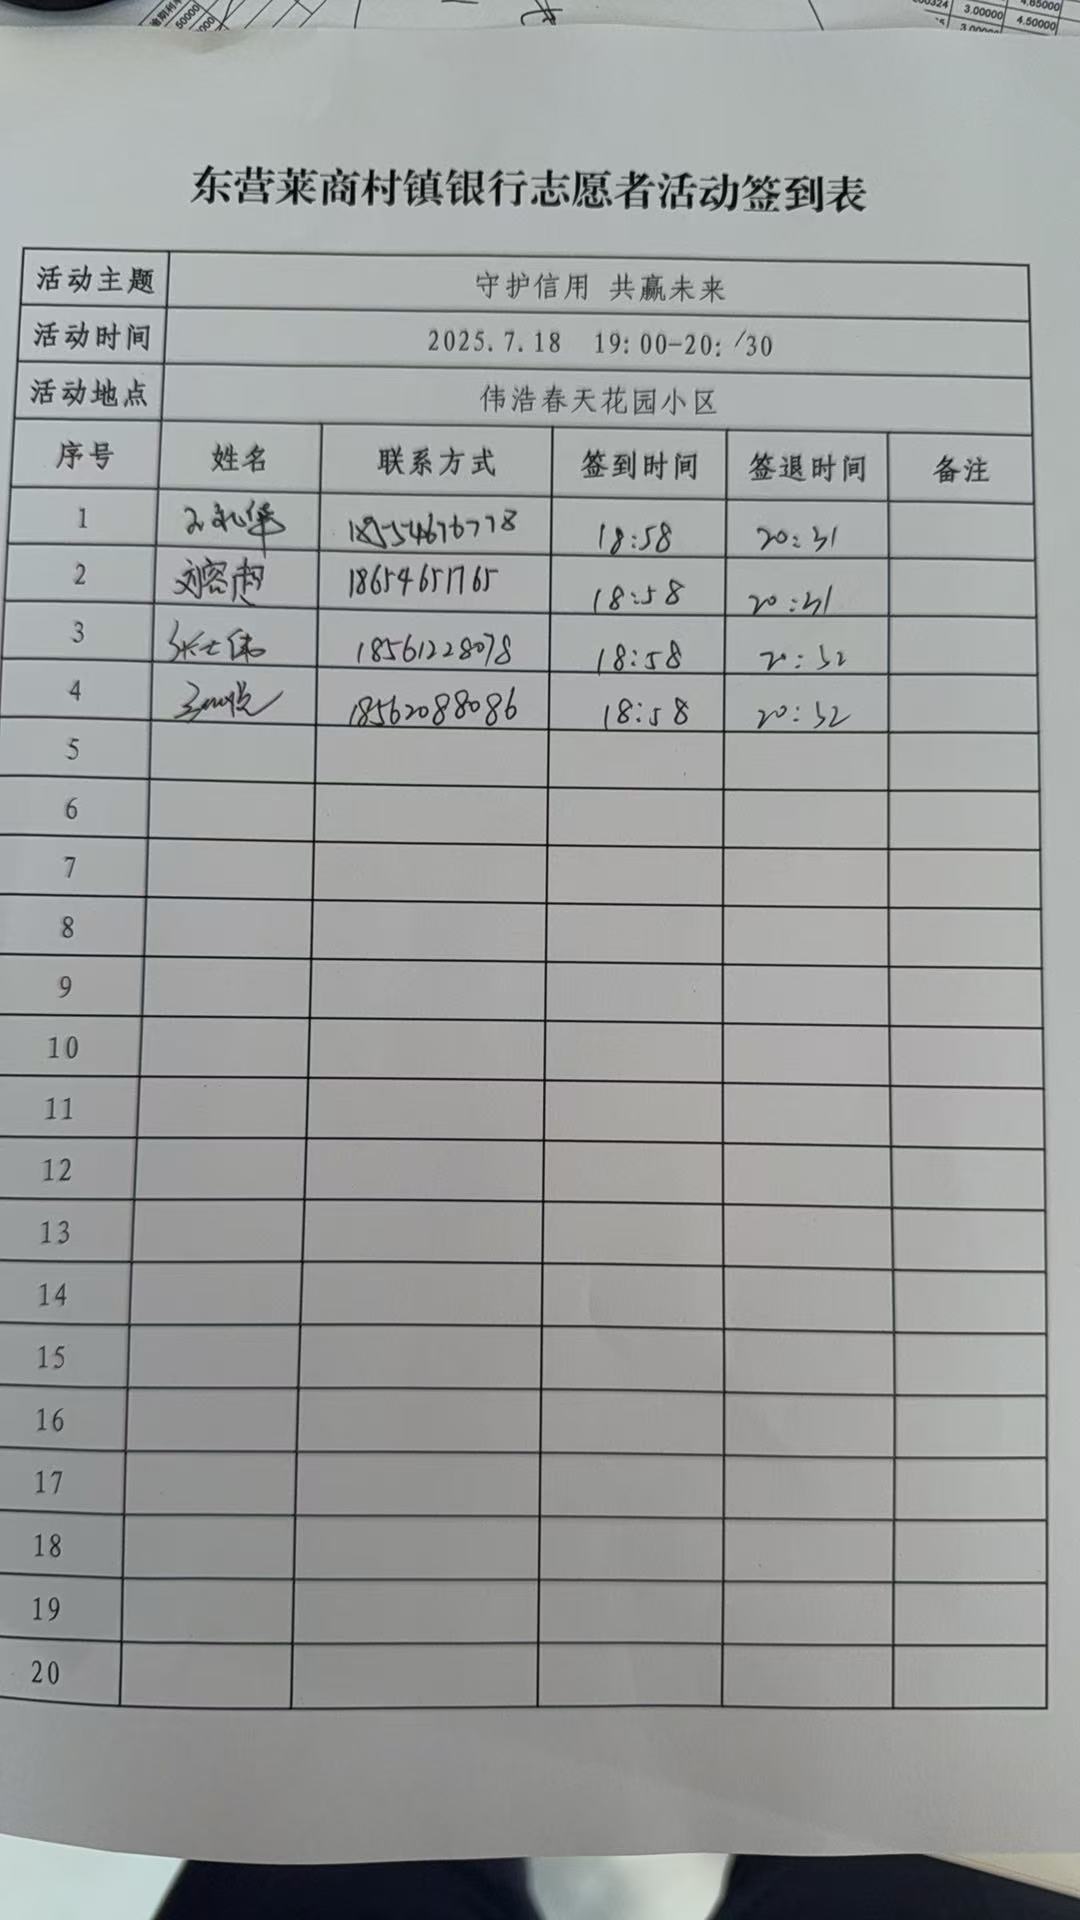 3.00000 4.50000
东营莱商村镇银行志愿者活动签到表
活动主题 守护信用 共赢未来
活动时间 2025.7.18 19:00-20:/30
活动地点 伟浩春天花园小区
序号 姓名 联系方式 签到时间 签退时间 备注
1 18554676778 18:58 20:31
2 刘容超 18654651765 18:58 20:31
3 张士伟 18561228078 18:58 20:32
4 18562088086 18:58 20:32
5
6
7
8
9
10
11
12
13
14
15
16
17
18
19
20